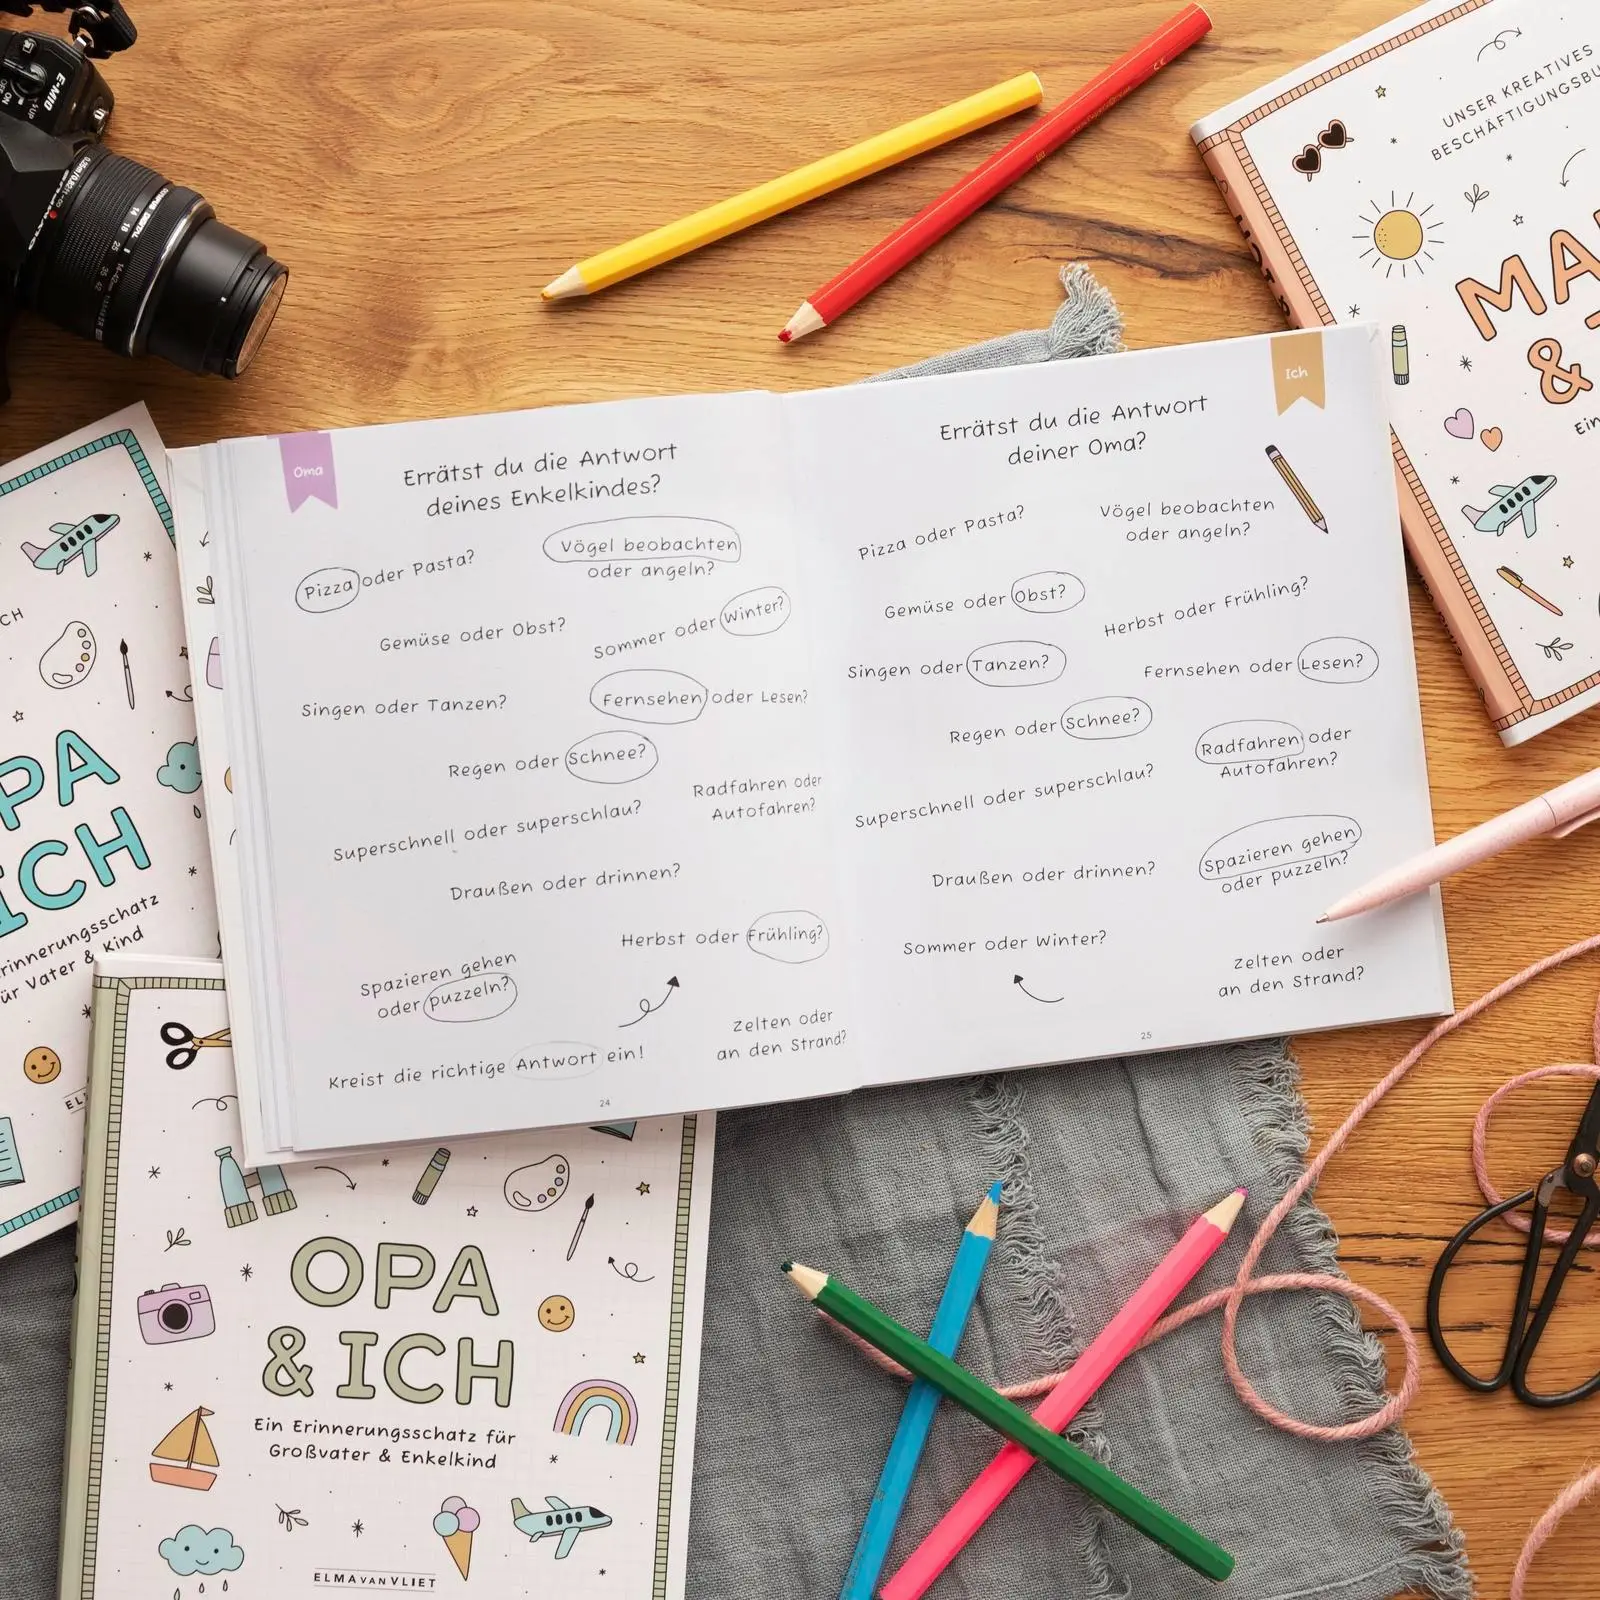 E-M10
ON
UNSER KREATIVES
Oma
Errätst du die Antwort
deines Enkelkindes?
Pizza oder Pasta?
Vögel beobachten
oder angeln?
Gemüse oder Obst?
Sommer oder Winter?
Singen oder Tanzen?
Fernsehen oder Lesen?
Regen oder Schnee?
Radfahren oder
Autofahren?
Superschnell oder superschlau?
Draußen oder drinnen?
Herbst oder Frühling?
Spazieren gehen
oder puzzeln?
Zelten oder
an den Strand?
Kreist die richtige Antwort ein!
24
Ich
Errätst du die Antwort
deiner Oma?
Pizza oder Pasta?
Vögel beobachten
oder angeln?
Gemüse oder Obst?
Herbst oder Frühling?
Singen oder Tanzen?
Fernsehen oder Lesen?
Regen oder Schnee?
Radfahren oder
Autofahren?
Superschnell oder superschlau?
Draußen oder drinnen?
Spazieren gehen
oder puzzeln?
Sommer oder Winter?
Zelten oder
an den Strand?
25
ICH
Vater & Kind
OPA
& ICH
Ein Erinnerungsschatz für
Großvater & Enkelkind
ELMA VAN VLIET